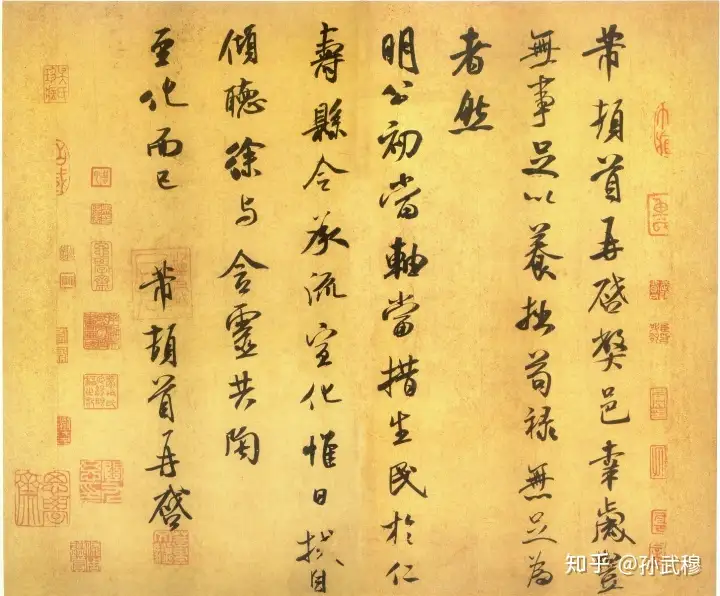 芾頓首再啓獘邑幸歲豊
無事足以養拙苟祿無足為
者然
明公初當軸當措生民於仁
壽縣令承流宣化惟日拭目
傾聽徐与含靈共陶
至化而已 芾頓首再啓
知乎 @孙武穆